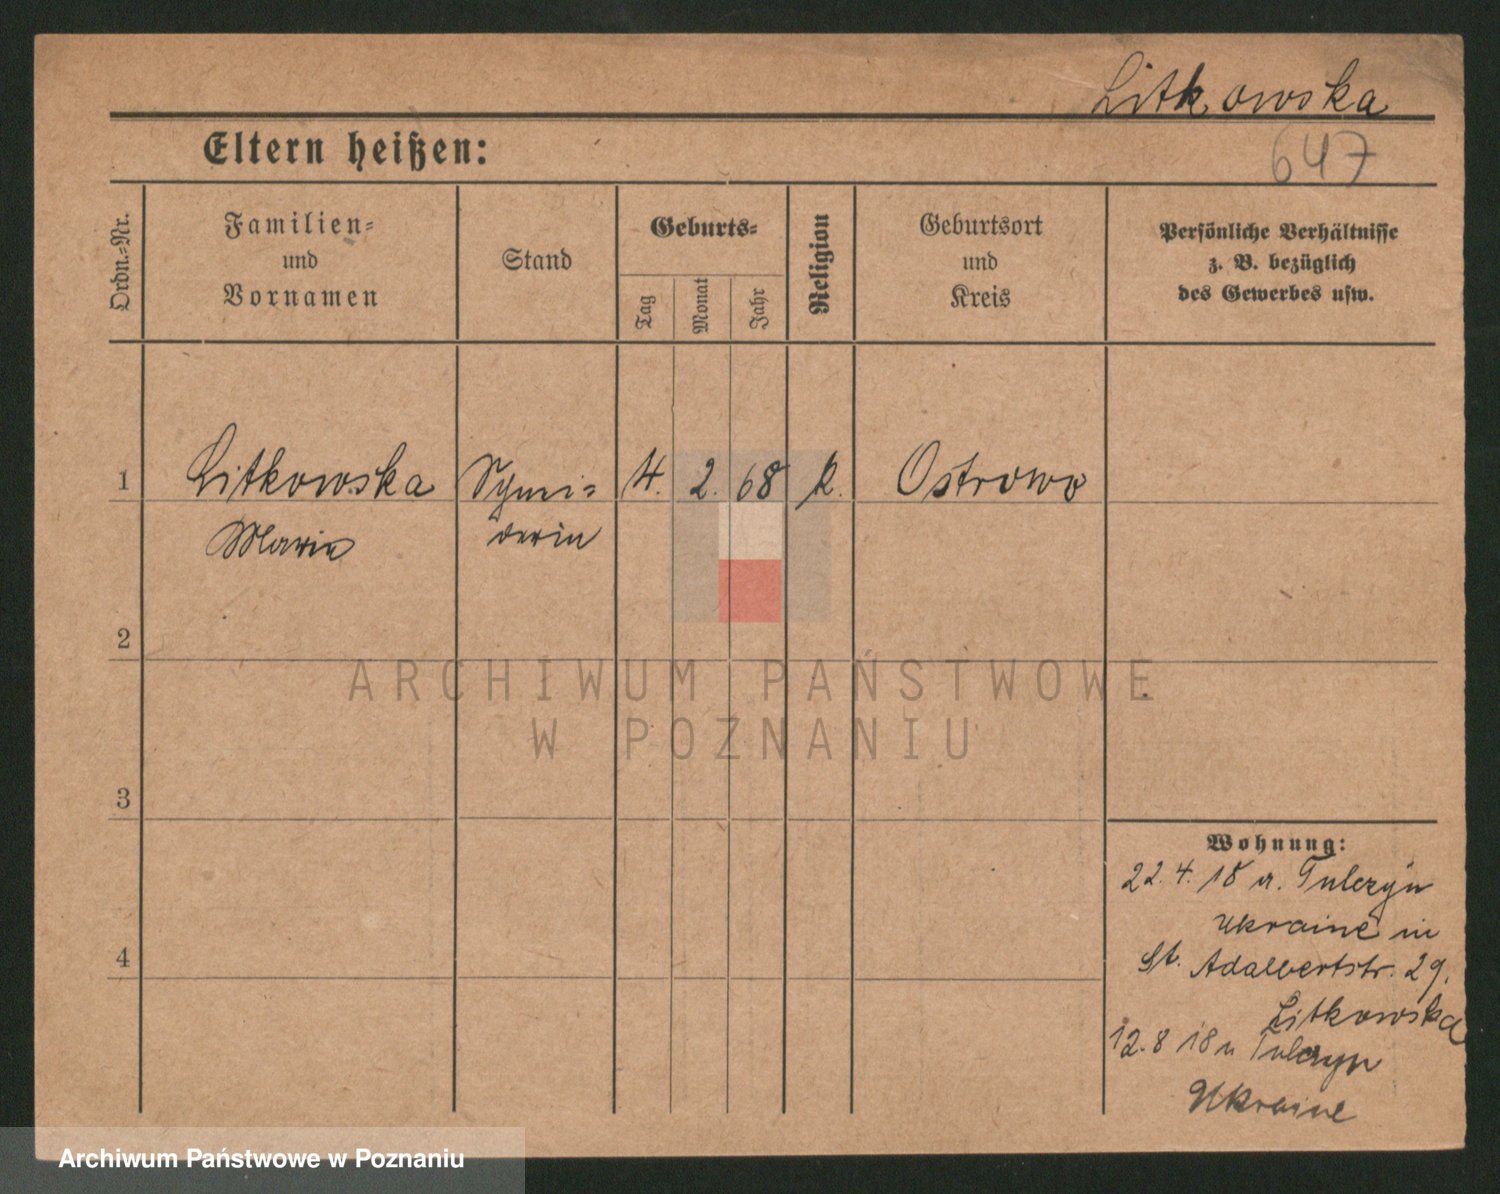 Litkowska
647
Eltern heißen:
Ordn.-Nr.
Familien-
und
Vornamen
Stand
Geburts-
Tag
Monat
Jahr
Religion
Geburtsort
und
Kreis
Persönliche Verhältnisse
z. B. bezüglich
des Gewerbes usw.
1 Litkowska 4. 2. 68 k. Ostrowo
Marie derin
2
ARCHIWUM PAŃSTWOWE
W POZNANIU
3
Wohnung:
22. 4. 18 a. Tulczyn
Ukraine in
St. Adalbertstr. 29.
Litkowska
12. 8 18 n Tulczyn
Ukraine
4
Archiwum Państwowe w Poznaniu